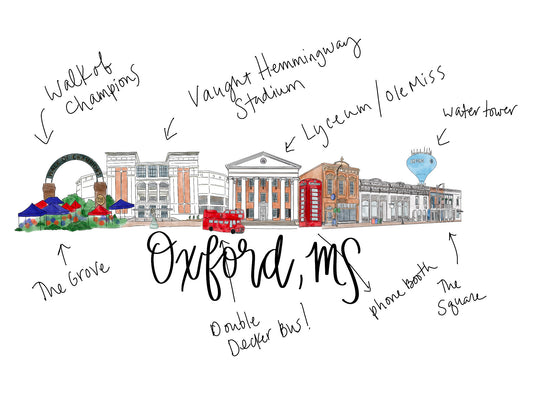 Walk of
Champions
Vaught Hemmingway
Stadium
Lyceum / Ole Miss
water tower
The Grove
Oxford, MS
Double
Decker Bus!
phone Booth
The
Square